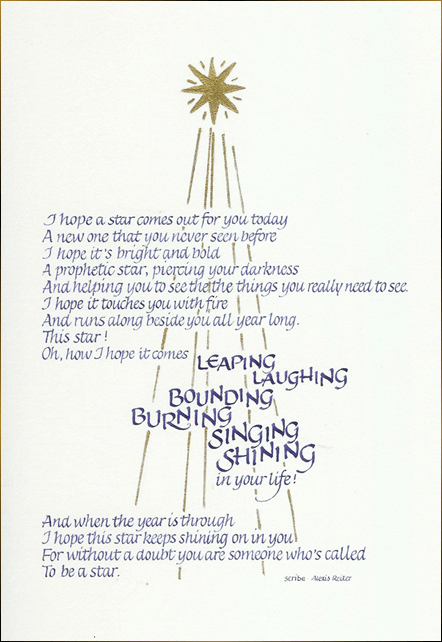 I hope a star comes out for you today
A new one that you never seen before
I hope it's bright and bold
A prophetic star, piercing your darkness
And helping you to see the the things you really need to see.
I hope it touches you with fire
And runs along beside you all year long.
This star!
Oh, how I hope it comes LEAPING
LAUGHING
BOUNDING
BURNING
SINGING
SHINING
in your life!
And when the year is through
I hope this star keeps shining on in you
For without a doubt you are someone who's called
To be a star.
scribe · Alexis Reiter